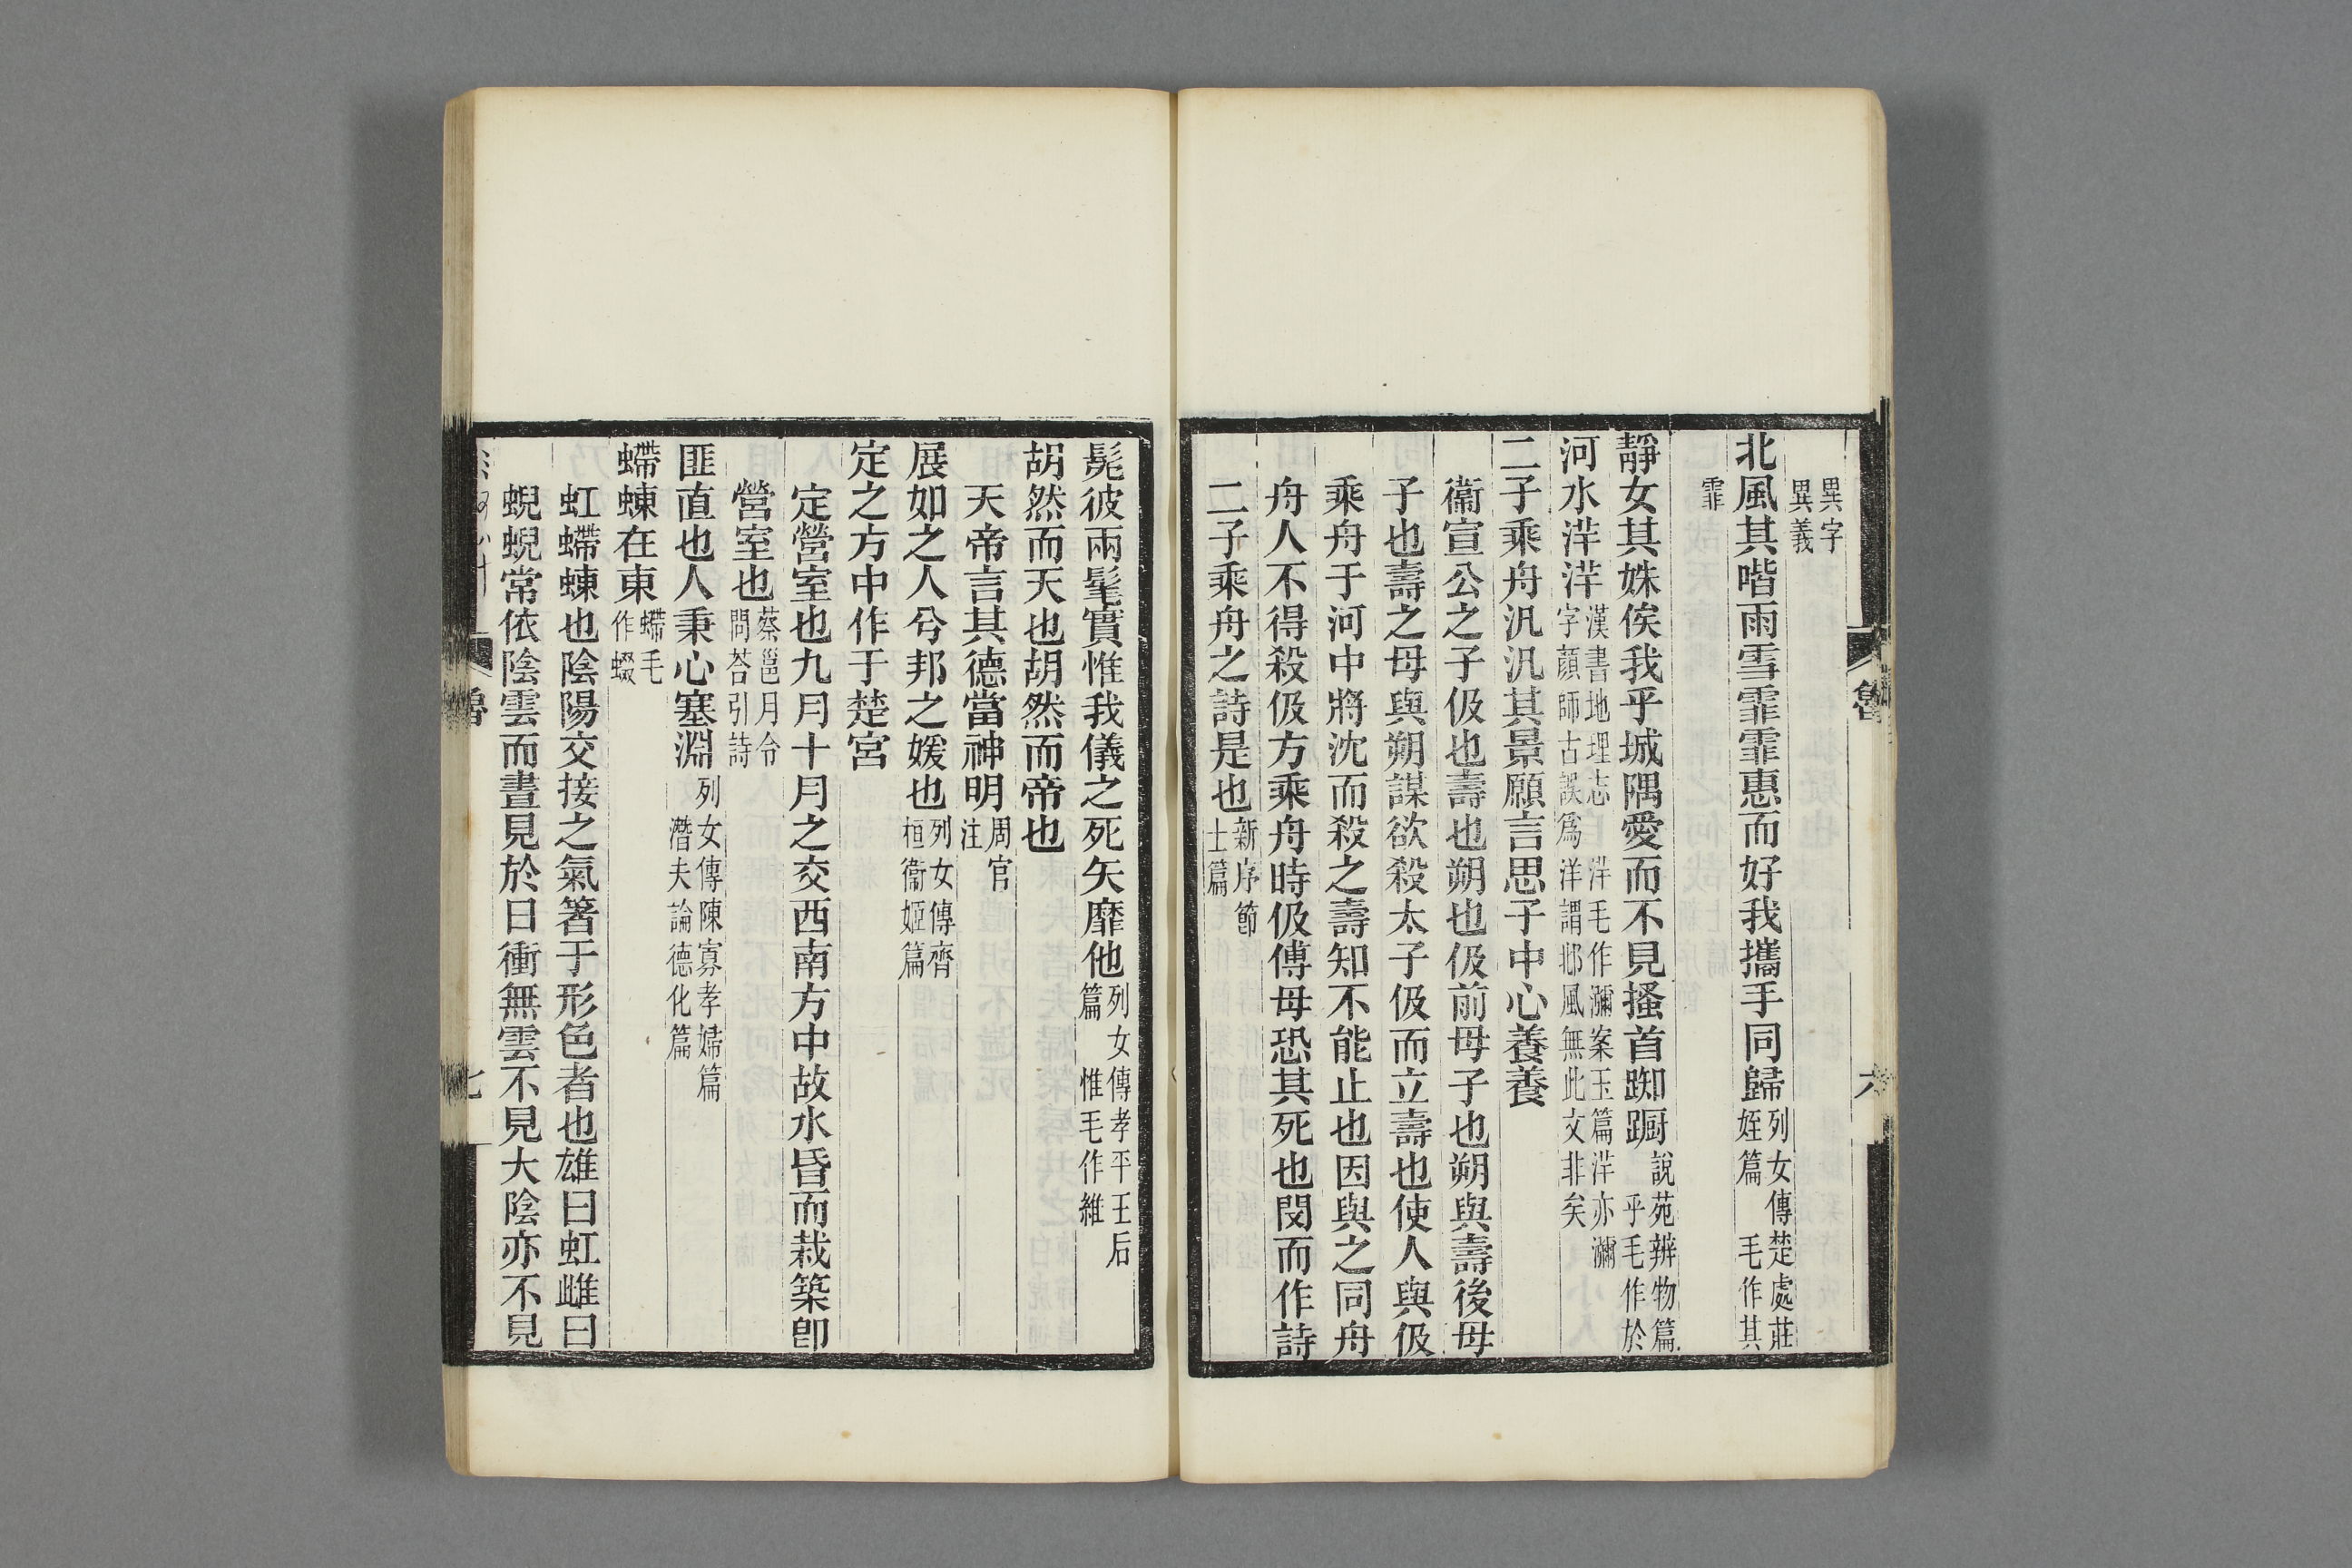 異字
異義
北風其喈雨雪霏霏惠而好我攜手同歸列女傳楚處莊姪篇 毛作其
霏
靜女其姝俟我乎城隅愛而不見搔首踟蹰說苑辨物篇 乎毛作於
河水洋洋漢書地理志 洋毛作瀰案玉篇洋亦瀰字顏師古誤爲洋謂邶風無此文非矣
二子乘舟汎汎其景願言思子中心養養
衞宣公之子伋也壽也朔也伋前母子也朔與壽後母
子也壽之母與朔謀欲殺太子伋而立壽也使人與伋
乘舟于河中將沈而殺之壽知不能止也因與之同舟
舟人不得殺伋方乘舟時伋傅母恐其死也閔而作詩
二子乘舟之詩是也新序節士篇
魯
六
髧彼兩髦實惟我儀之死矢靡他列女傳孝平王后篇 惟毛作維
胡然而天也胡然而帝也
天帝言其德當神明周官注
展如之人兮邦之媛也列女傳齊桓衞姬篇
定之方中作于楚宮
定營室也九月十月之交西南方中故水昏而栽築卽
營室也蔡邕月令問荅引詩
匪直也人秉心塞淵列女傳陳寡孝婦篇 潛夫論德化篇
蝃蝀在東蝃毛作蝃
虹蝃蝀也陰陽交接之氣箸于形色者也雄曰虹雌曰
蜺蜺常依陰雲而晝見於日衝無雲不見大陰亦不見
魯
七